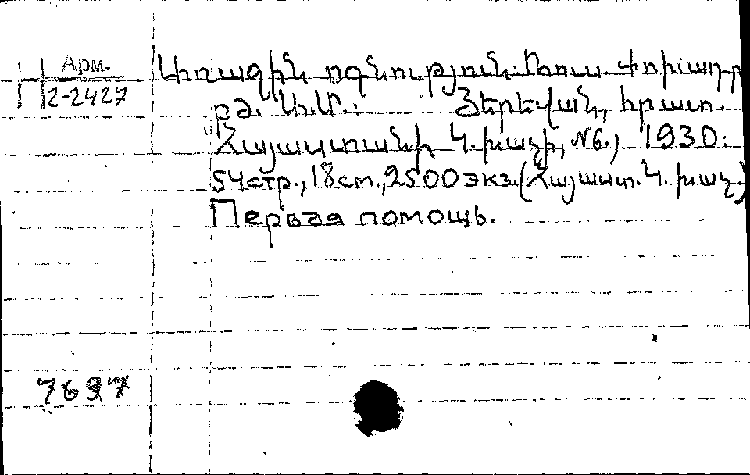 Арм.
2-2427
Առաջին օգնություն: Ռուս.
Երևան, հրատ.
Հայաստանի Կ. խաչի, №6., 1930:
54стр., 18cm., 2500экз. (Հայաստ. Կ. խաչ)
Первая помощь.
7697